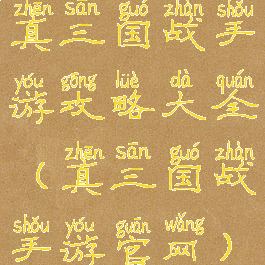 zhēn sān guó zhàn shǒu
真三国战手
yóu gōng lüè dà quán
游攻略大全
zhēn sān guó zhàn
（真三国战
shǒu yóu guān wǎng
手游官网）